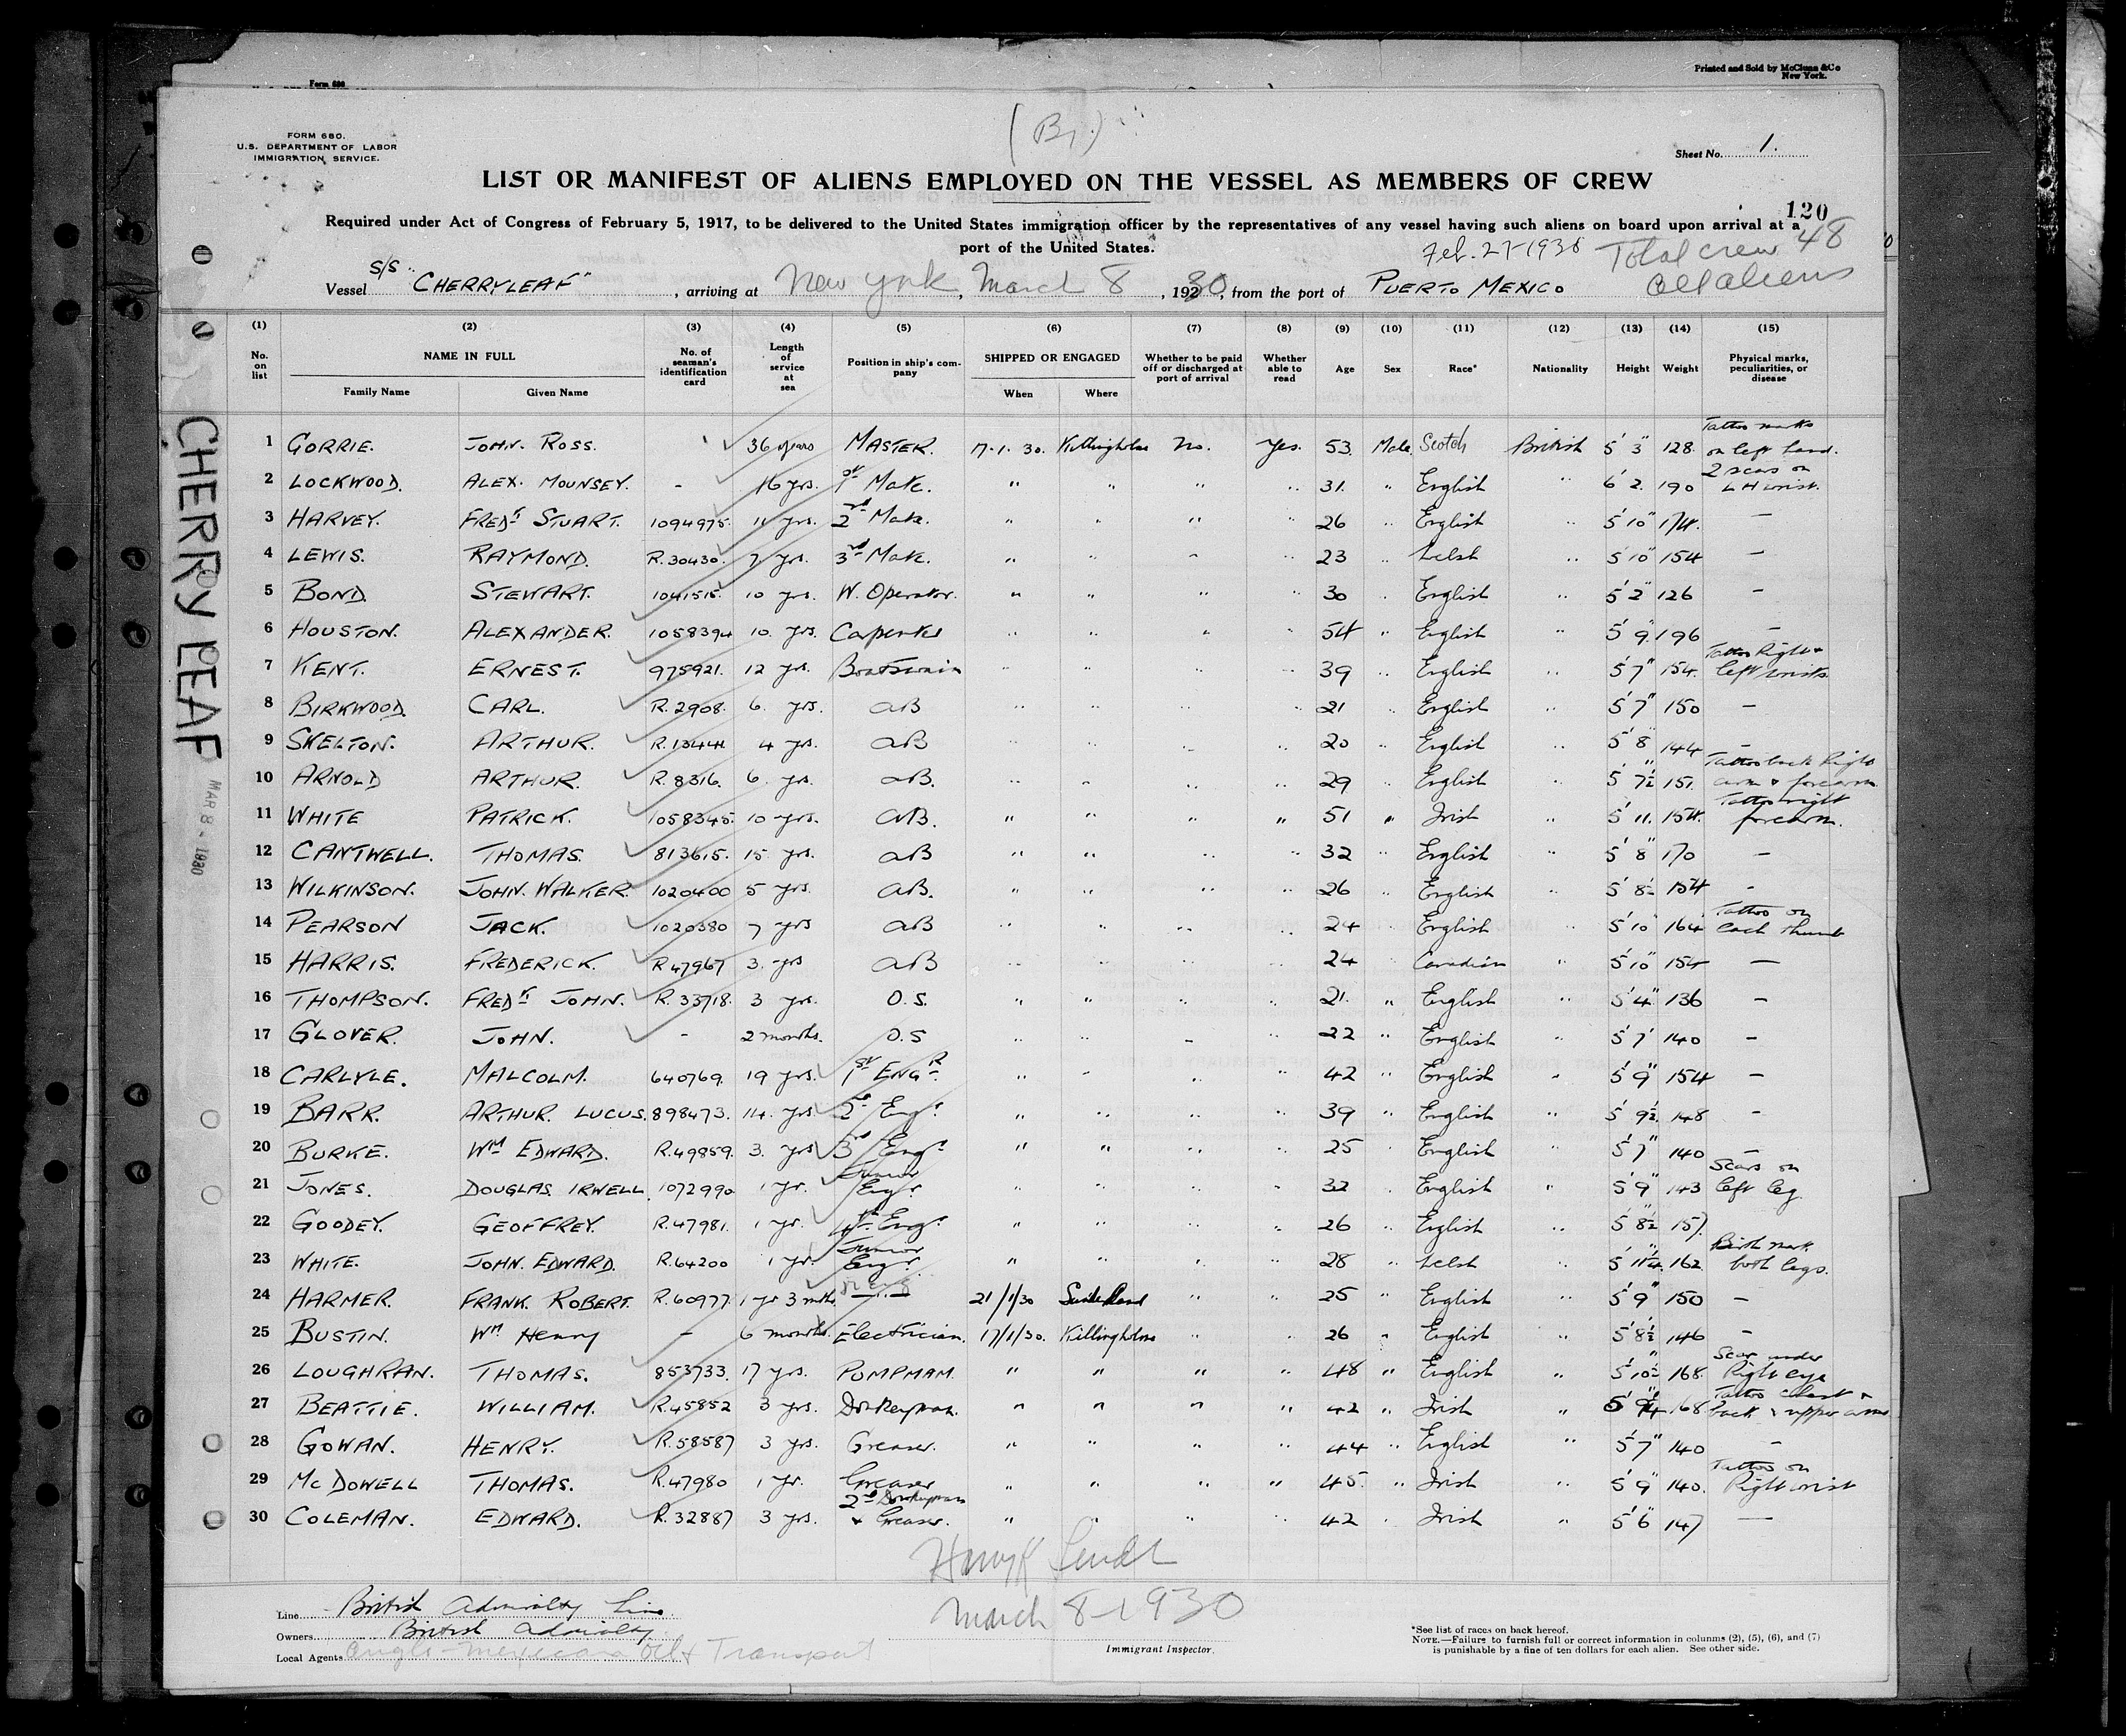 Form 680
Printed and Sold by McClunn &Co
New York.
(Br)
FORM 680.
U.S. DEPARTMENT OF LABOR
IMMIGRATION SERVICE.
Sheet No. 1.
LIST OR MANIFEST OF ALIENS EMPLOYED ON THE VESSEL AS MEMBERS OF CREW
120
Required under Act of Congress of February 5, 1917, to be delivered to the United States immigration officer by the representatives of any vessel having such aliens on board upon arrival at a
port of the United States.
Feb. 27-1930 Total crew 48
all aliens
Vessel S/S "CHERRYLEAF", arriving at New York, March 8, 1930, from the port of PUERTO MEXICO
(1) (2) (3) (4) (5) (6) (7) (8) (9) (10) (11) (12) (13) (14) (15)
No. on list NAME IN FULL Family Name Given Name No. of seaman's identification card Length of service at sea Position in ship's company SHIPPED OR ENGAGED When Where Whether to be paid off or discharged at port of arrival Whether able to read Age Sex Race* Nationality Height Weight Physical marks, peculiarities, or disease
CHERRY LEAF
MAR 8 - 1930
1 GORRIE. JOHN. ROSS. 36 years MASTER. 17.1.30. Killingholme No. Yes. 53 Male Scotch British 5' 3" 128. Tattoo marks on left hand.
2 LOCKWOOD. ALEX. MOUNSEY. - 16 yrs. 1st Mate. " " " " 31. " English " 6' 2. 190 2 scars on L H wrist.
3 HARVEY. FREDK STUART. 1094975. 11 yrs. 2nd Mate. " " " " 26 " English " 5' 10" 174. -
4 LEWIS. RAYMOND. R.30430. 7 yrs. 3rd Mate. " " " " 23 " Welsh " 5' 10" 154 -
5 BOND STEWART. 1041515. 10 yrs. W. Operator. " " " " 30 " English " 5' 2" 126 -
6 HOUSTON. ALEXANDER. 1058394 10. yrs. Carpenter " " " " 54 " English " 5' 9" 196 -
7 KENT. ERNEST. 975921. 12 yrs. Boatswain " " " " 39 " English " 5' 7" 154. Tattoo Right & left wrists.
8 BIRKWOOD. CARL. R.2908. 6. yrs. AB " " " " 21 " English " 5' 7" 150 -
9 SKELTON. ARTHUR. R.13444. 4 yrs. AB " " " " 20 " English " 5' 8" 144 -
10 ARNOLD ARTHUR. R.8316. 6 yrs. AB. " " " " 29 " English " 5' 7½" 151. Tattoo back Right arm & forearm
11 WHITE PATRICK. 1058345. 10 yrs. AB. " " " " 51 " Irish " 5' 11. 154. Tattoo right forearm.
12 CANTWELL. THOMAS. 813615. 15 yrs. AB " " " " 32 " English " 5' 8" 170 -
13 WILKINSON. JOHN. WALKER. 1020400 5 yrs. AB. " " " " 26 " English " 5' 8½ 154 -
14 PEARSON JACK. 1020380 7 yrs AB " " " " 24 " English " 5' 10" 164 Tattoo on each thumb
15 HARRIS. FREDERICK. R 47967 3. yrs AB " " " " 24 " Canadian " 5' 10" 154 -
16 THOMPSON. FREDK JOHN. R. 33718. 3 yrs. O.S. " " " " 21. " English " 5' 4" 136 -
17 GLOVER. JOHN. - 2 months. O.S " " " " 22 " English " 5' 7' 140 -
18 CARLYLE. MALCOLM. 640769. 19 yrs. 1st ENGR. " " " " 42 " English " 5' 9" 154 -
19 BARR. ARTHUR. LUCUS. 898473. 14. yrs 2nd Engr " " " " 39 " English " 5' 9½. 148 -
20 BURKE. WM EDWARD. R.49859. 3. yrs 3rd Engr " " " " 25 " English " 5' 7" 140 -
21 JONES. DOUGLAS IRWELL. 1072990 1 yr. Junior Engr " " " " 32 " English " 5' 9" 143 Scars on left leg.
22 GOODEY. GEOFFREY. R.47981. 1 yr. 4th Engr " " " " 26 " English " 5' 8½ 157.
23 WHITE. JOHN. EDWARD. R.64200 1 yr. Junior Engr. " " " " 28 " Welsh " 5' 11¼. 162. Birth mark both legs.
24 HARMER. FRANK. ROBERT. R.60977. 1 yr 3 mths. Jr eng 21/1/30 Sunderland " " 25 " English " 5' 9" 150 -
25 BUSTIN. WM Henry - 6 months. Electrician. 17/1/30. Killingholme " " 26 " English " 5' 8½ 146 -
26 LOUGHRAN. THOMAS. 853733. 17 yrs. PUMPMAM. " " " " 48 " English " 5' 10½" 168. Scar under Right eye
27 BEATTIE. WILLIAM. R.45852 3 yrs. Donkeyman. " " " " 42 " Irish " 5' 9¼ 168 Tattoo chest & back & upper arms
28 GOWAN. HENRY. R.58587 3 yrs. Greaser. " " " " 44 " English " 5' 7" 140 -
29 McDOWELL THOMAS. R.47980 1 yr. Greaser " " " " 45. " Irish " 5' 9" 140. Tattoo on Right wrist
30 COLEMAN. EDWARD. R.32887 3 yrs. 2nd Donkeyman & Greaser. " " " " 42 " Irish " 5' 6" 147 -
March 8-1930
Immigrant Inspector.
Line British Admiralty Line
Owners British Admiralty
Local Agents Anglo-Mexican Oil & Transport
*See list of races on back hereof.
NOTE.—Failure to furnish full or correct information in columns (2), (5), (6), and (7)
is punishable by a fine of ten dollars for each alien. See other side.